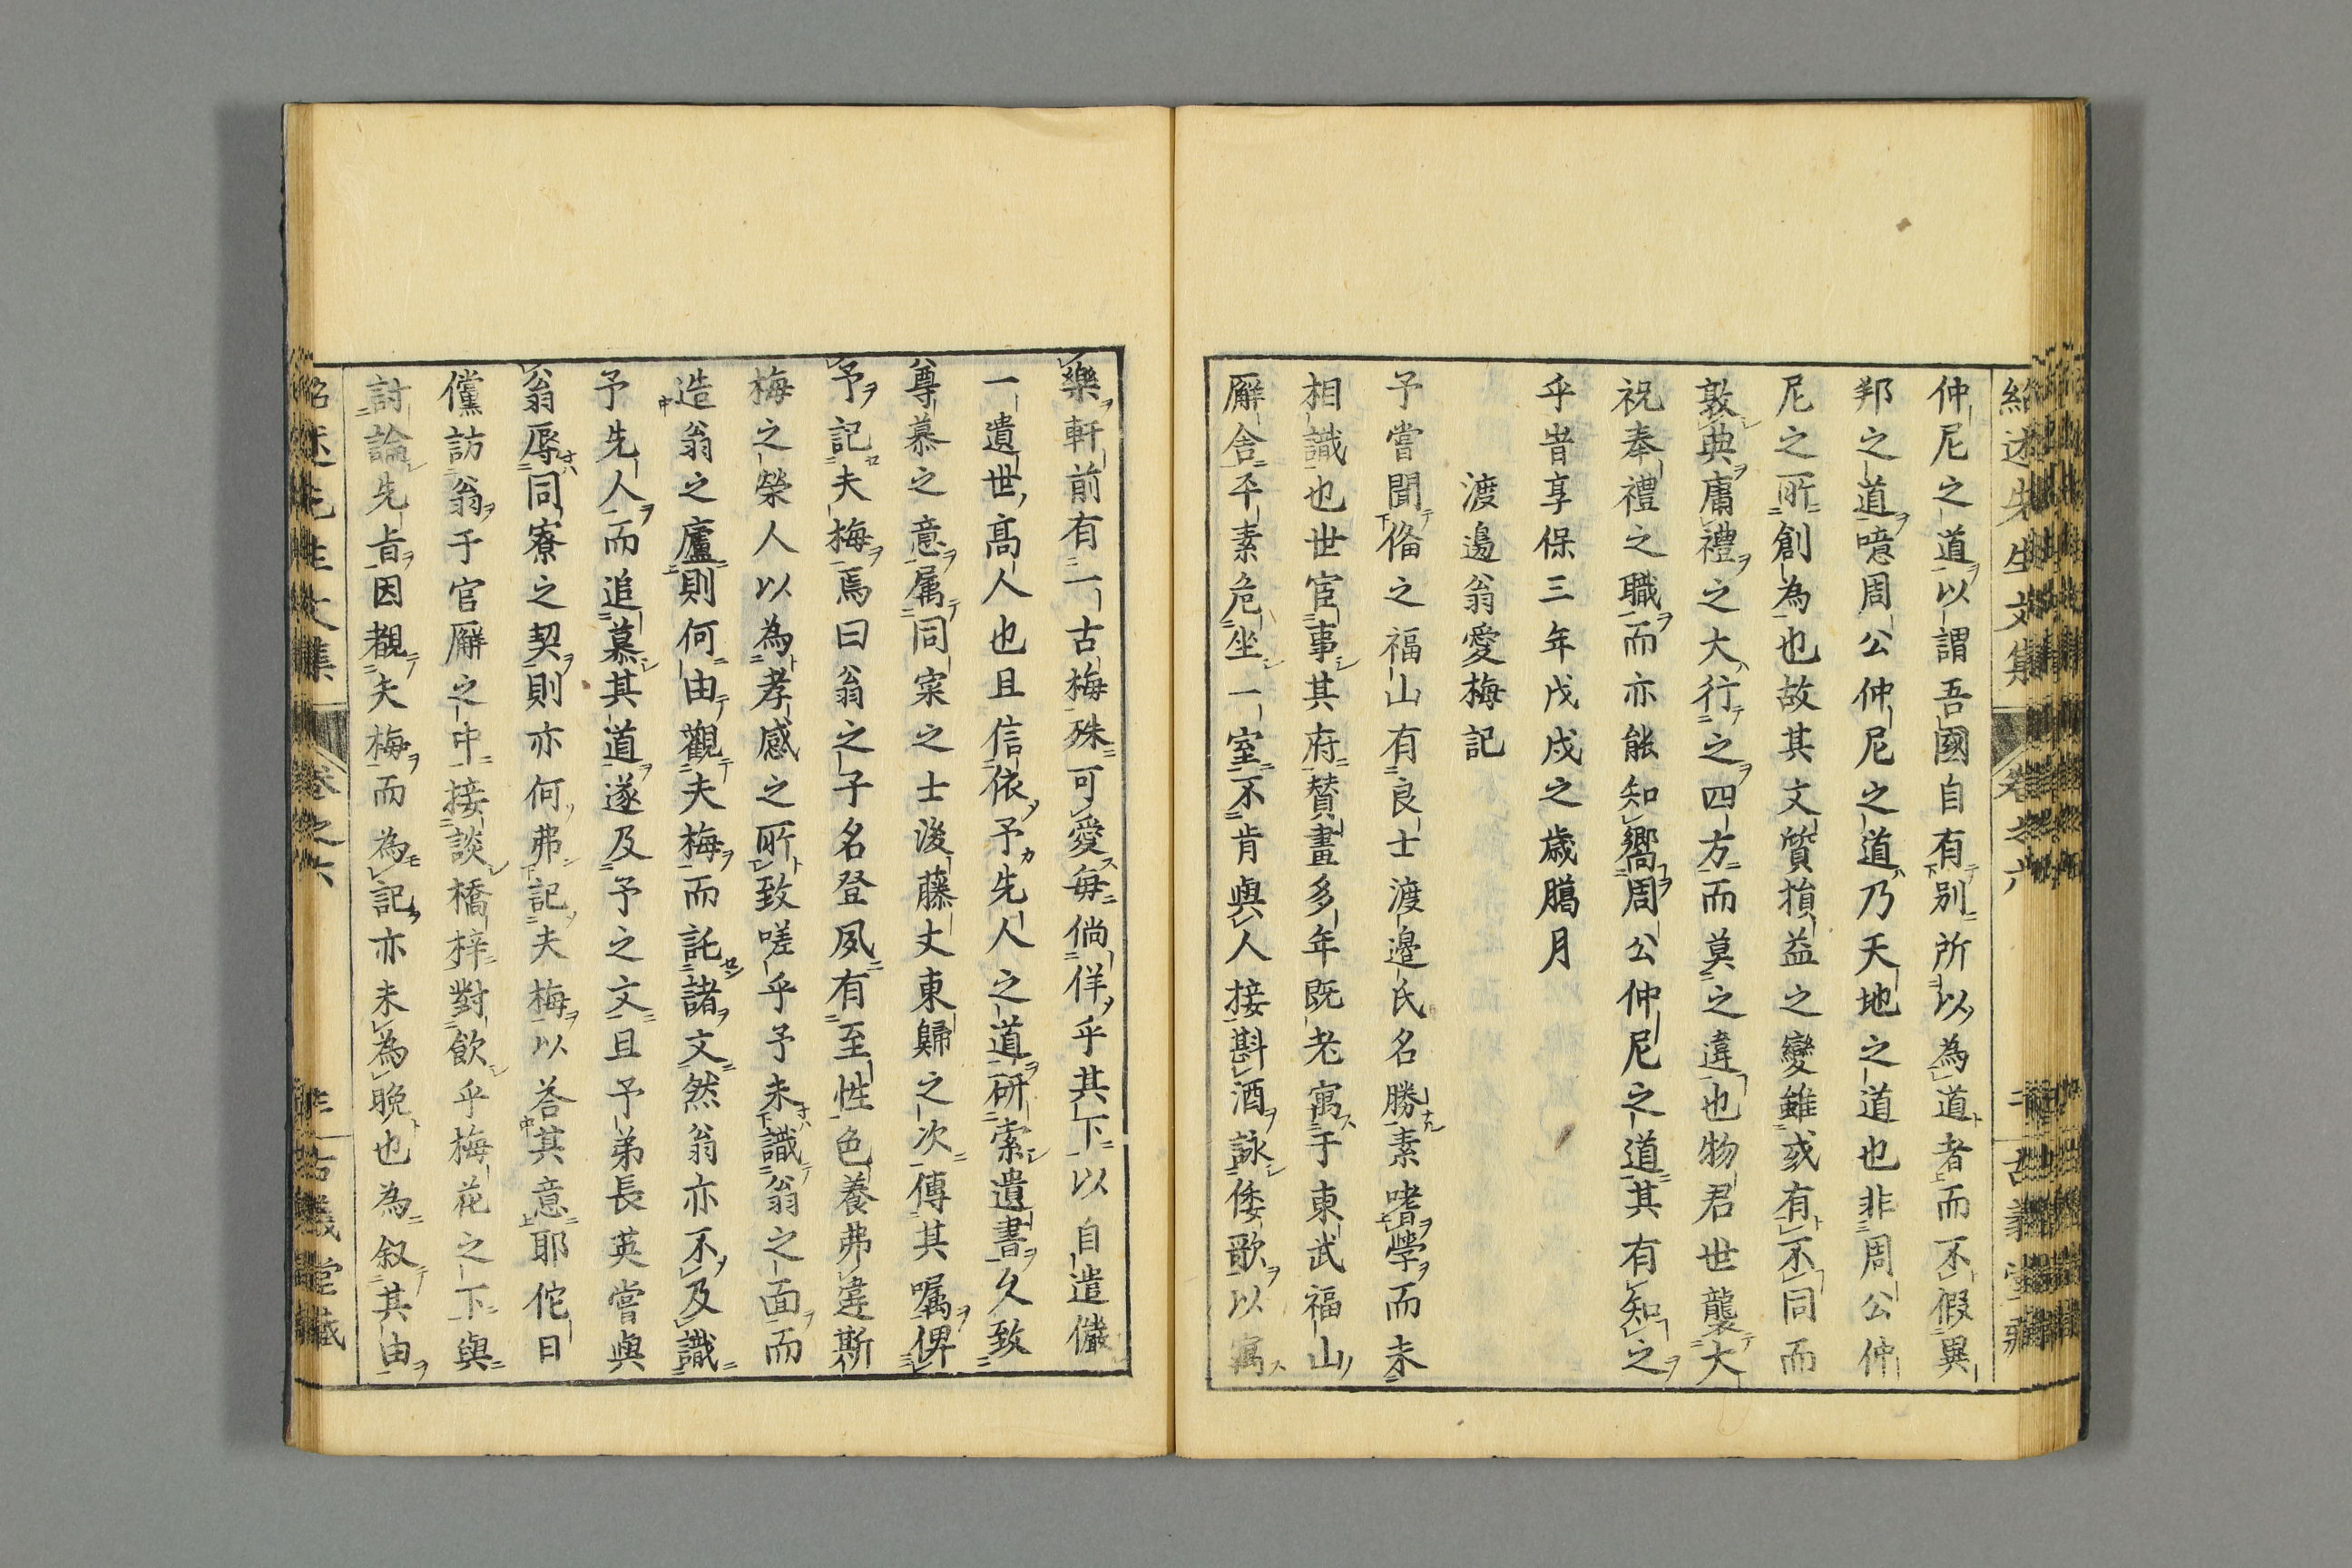 仲尼之道以謂吾國自有別所以為道者而不假異
邦之道噫周公仲尼之道乃天地之道也非周公仲
尼之所創為也故其文質損益之變雖或有不同而
敦典庸禮之大行之四方而莫之違也物君世襲大
祝奉禮之職而亦能知嚮周公仲尼之道其有知之
乎旹享保三年戊戌之歳臈月
渡邉翁愛梅記
予嘗聞俻之福山有良士渡邉氏名勝素嗜學而未
相識也世宦事其府賛畫多年既老寓于東武福山
廨舎平素危坐一室不肯與人接斟酒詠倭歌以寓
樂軒前有一古梅殊可愛毎倘佯乎其下以自遣儼
一遺世高人也且信依予先人之道研索遺書久致
尊慕之意属同寀之士後藤丈東歸之次傳其嘱俾
予記夫梅焉曰翁之子名登夙有至性色養弗違斯
梅之榮人以為孝感之所致嗟乎予未識翁之面而
造翁之廬則何由觀夫梅而託諸文然翁亦不及識
予先人而追慕其道遂及予之文且予弟長英嘗與
翁辱同寮之契則亦何弗記夫梅以荅其意耶佗日
儻訪翁于官廨之中接談橋梓對飲乎梅花之下與
討論先旨因覩夫梅而為記亦未為晩也為叙其由